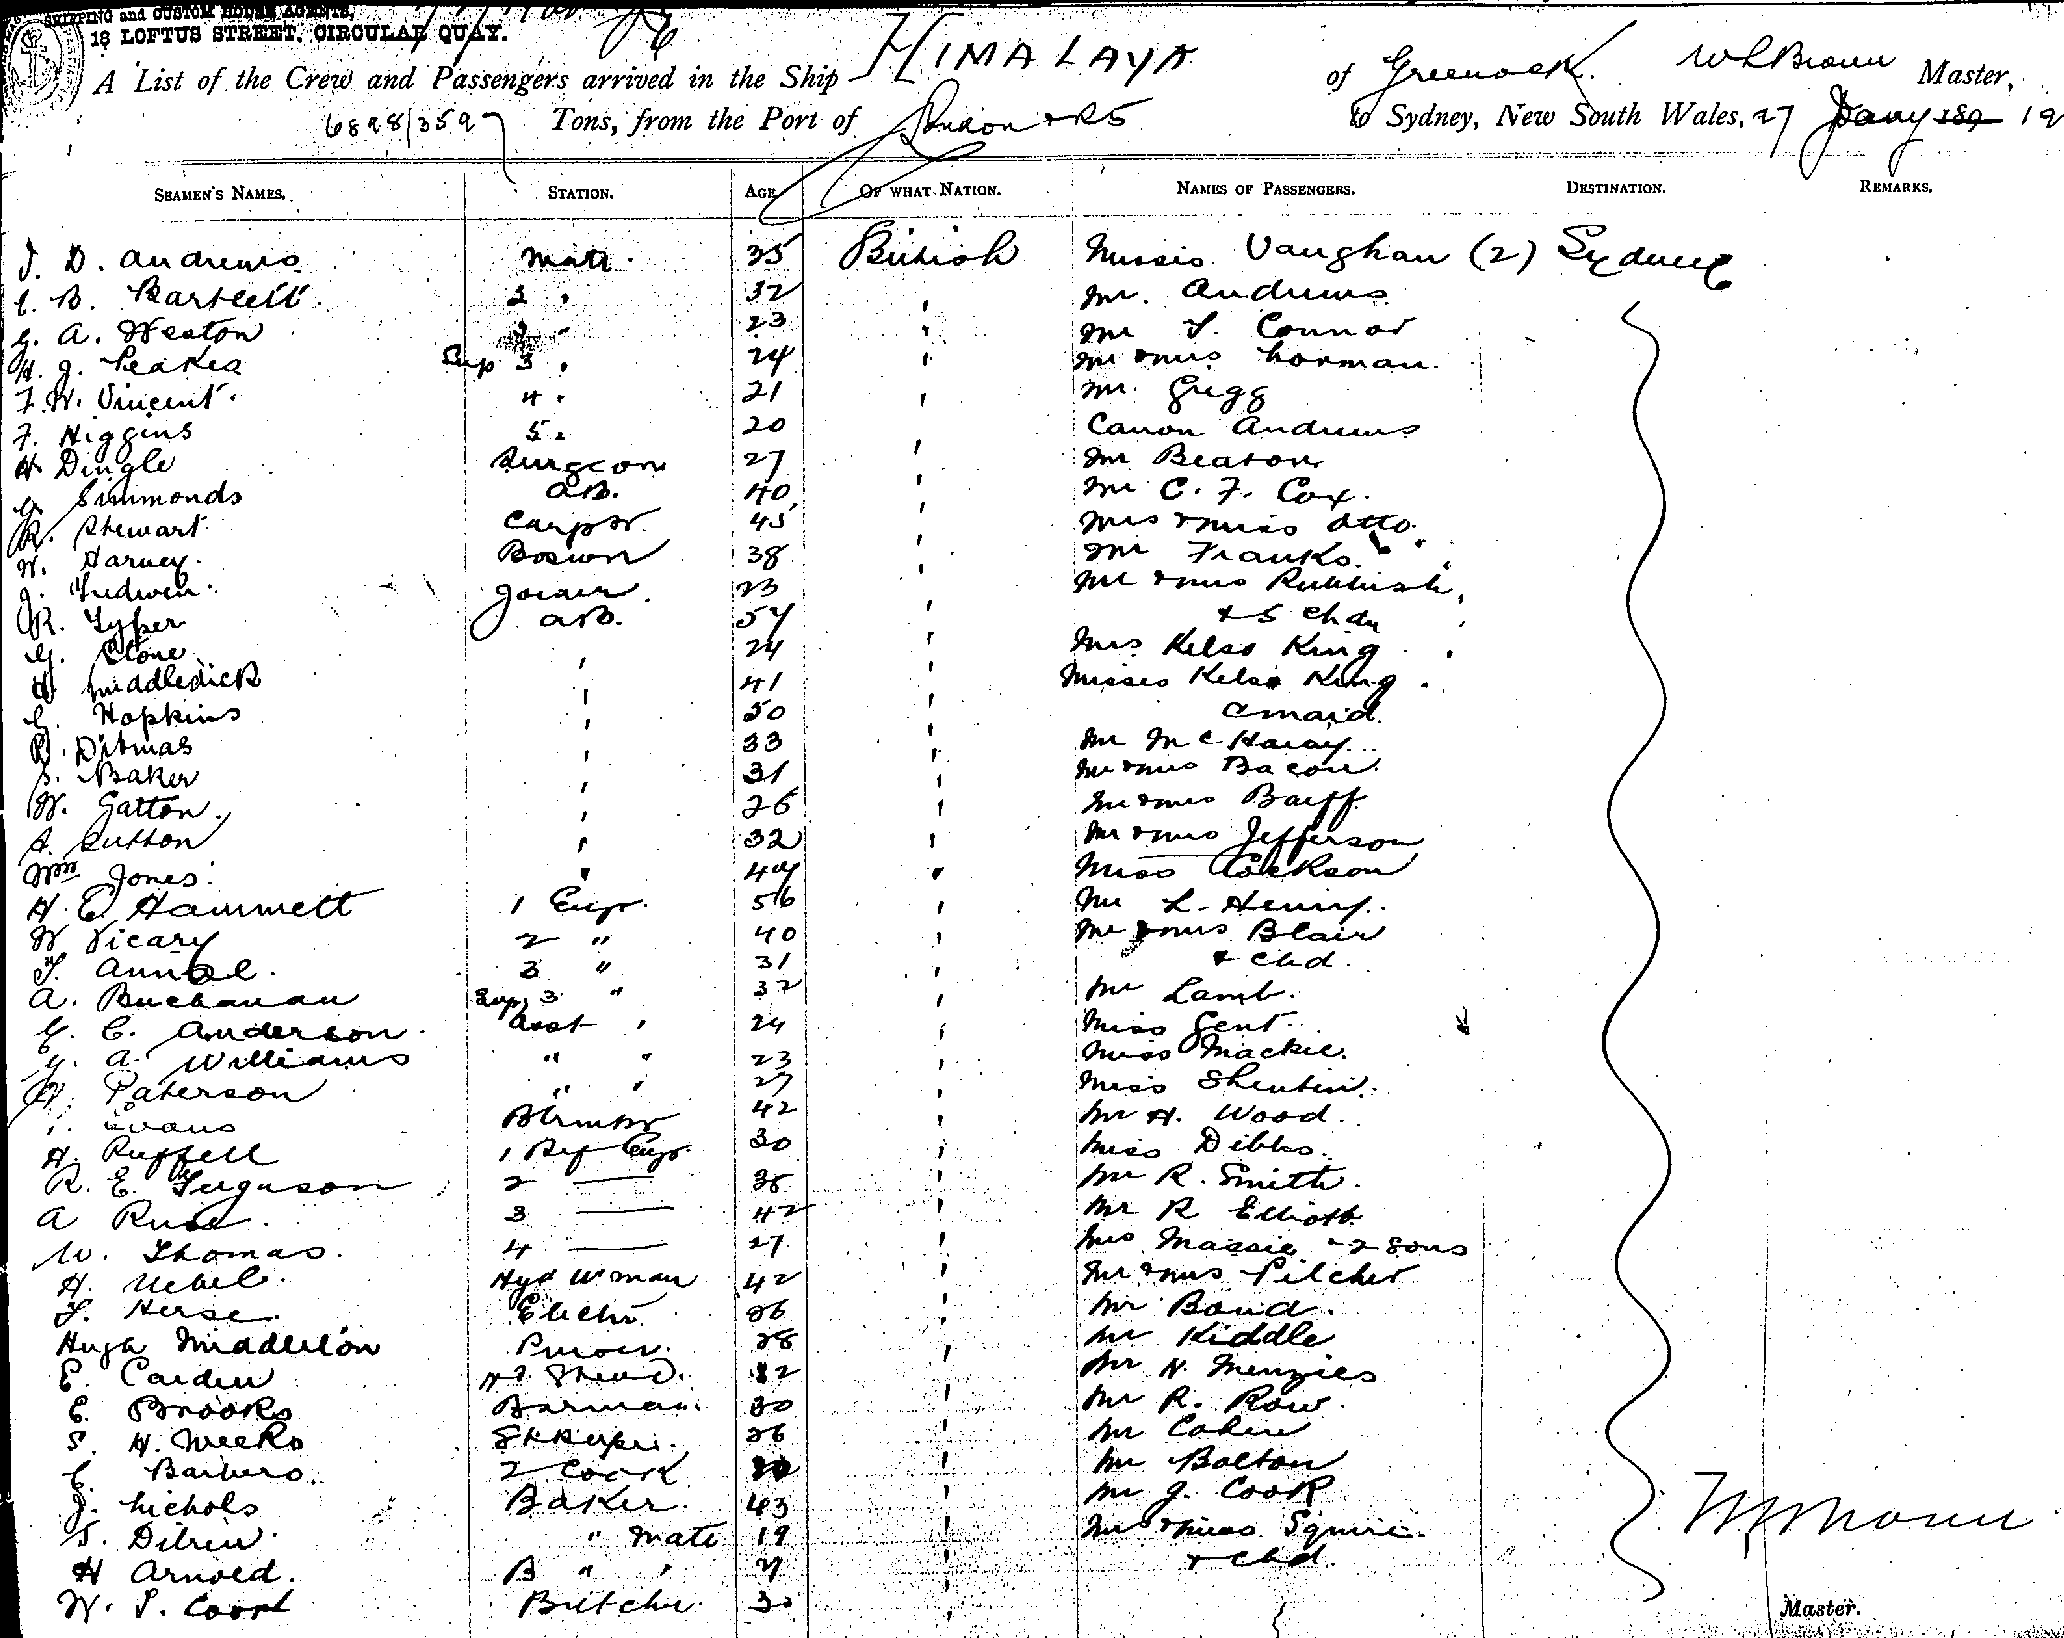 SHIPPING and CUSTOM HOUSE AGENTS,
18 LOFTUS STREET, CIRCULAR QUAY.
A List of the Crew and Passengers arrived in the Ship HIMALAYA of Greenock. W L Brown Master,
6898/3597 Tons, from the Port of London to Sydney, New South Wales, 27 Jany 189 19
SEAMEN'S NAMES. STATION. AGE OF WHAT NATION. NAMES OF PASSENGERS. DESTINATION. REMARKS.
J. D. Andrews Mate 35 British Misses Vaughan (2) Sydney
B. Bartlett 2 " 32 " Mr. Andrews
G. A. Weston 3 " 23 " Mr Connor
H. J. Peakes Sup 3 " 24 " Mr & Mrs Lorman
F. W. Vincent 4 " 21 " Mr. Grigg
F. Higgins 5 " 20 Canon Andrews
H. Dingle Surgeon 27 " Mr Beaton
G. Simmonds A.B. 40 " Mr C. F. Cox.
R. Stewart Carptr 45 " Mrs & Miss Otto
W. Harvey Boswn 38 " Mr Franks
J. Tredwen Joiner 23 Mr & Mrs
R. Lyper A.B. 54 " & 5 Chdn
G. Stone " 24 " Mrs Kelso King
Middledick " 41 " Misses Kelso King
Hopkins " 50 " & maid
Ditmas " 33 " Mr
S. Baker " 31 " Mr & Mrs Bacon
W. Gatton " 26 " Mr & Mrs Barff
A. Sutton " 32 " Mr & Mrs Jefferson
Wm Jones " 44 " Miss Cookson
H. E. Hammett 1 Engr. 56 " Mr L. Henry
W Vicary 2 " 40 " Mr & Mrs Blair
T. Annal 3 " 31 " & Chd.
A. Buchanan Sup 3 " 32 " Mr Lamb.
G. C. Anderson Asst " 24 " Miss Gent
G. A. Williams " " 23 " Miss Mackie
Paterson " " 27 " Miss Shentin
Evans 42 " Mr H. Wood.
H. Ruffell 1 Ref Engr. 30 " Miss Dibbs
R. E. Ferguson 2 — " Mr R. Smith.
A Ruse 3 — 42 " Mr R Elliott
W. Thomas. 4 — 27 " Mrs Massie & 2 Sons
H. Nebel Hyd Wman 42 " Mr & Mrs Pilcher
T. Herse Electn. 26 " Mr Bond.
Hugh Middleton Purser. 28 " Mr Kiddle
E. Carden 32 " Mr H. Menzies
E. Brooks Barman 30 " Mr R. Row
S. H. Weeks Skkeeper 26 " Mr Cohen
Barbero 2 Cook " Mr Bolton
J. Nichols Baker 43 " Mr J. Cook
S. Dilrew " Mate 19 " Mr & Miss Squire
H Arnold. B " " " & Chd.
W. Butcher
Master.